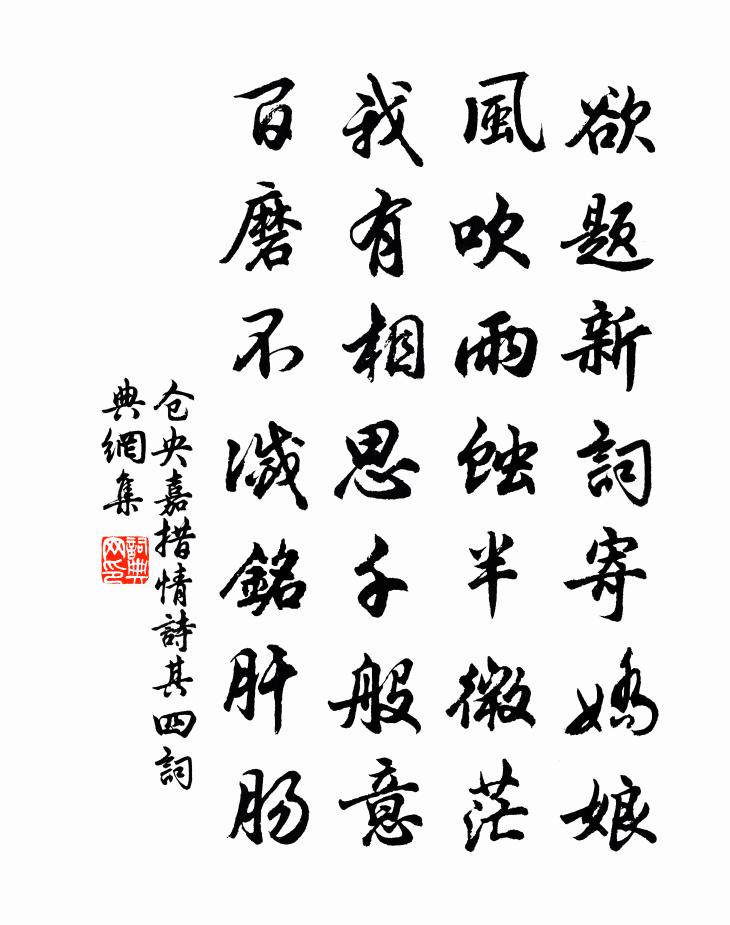 欲題新詞寄嬌娘
風吹雨蝕半微茫
我有相思千般意
百磨不滅銘肝腸
仓央嘉措情詩其四詞
典網集
詞典网印